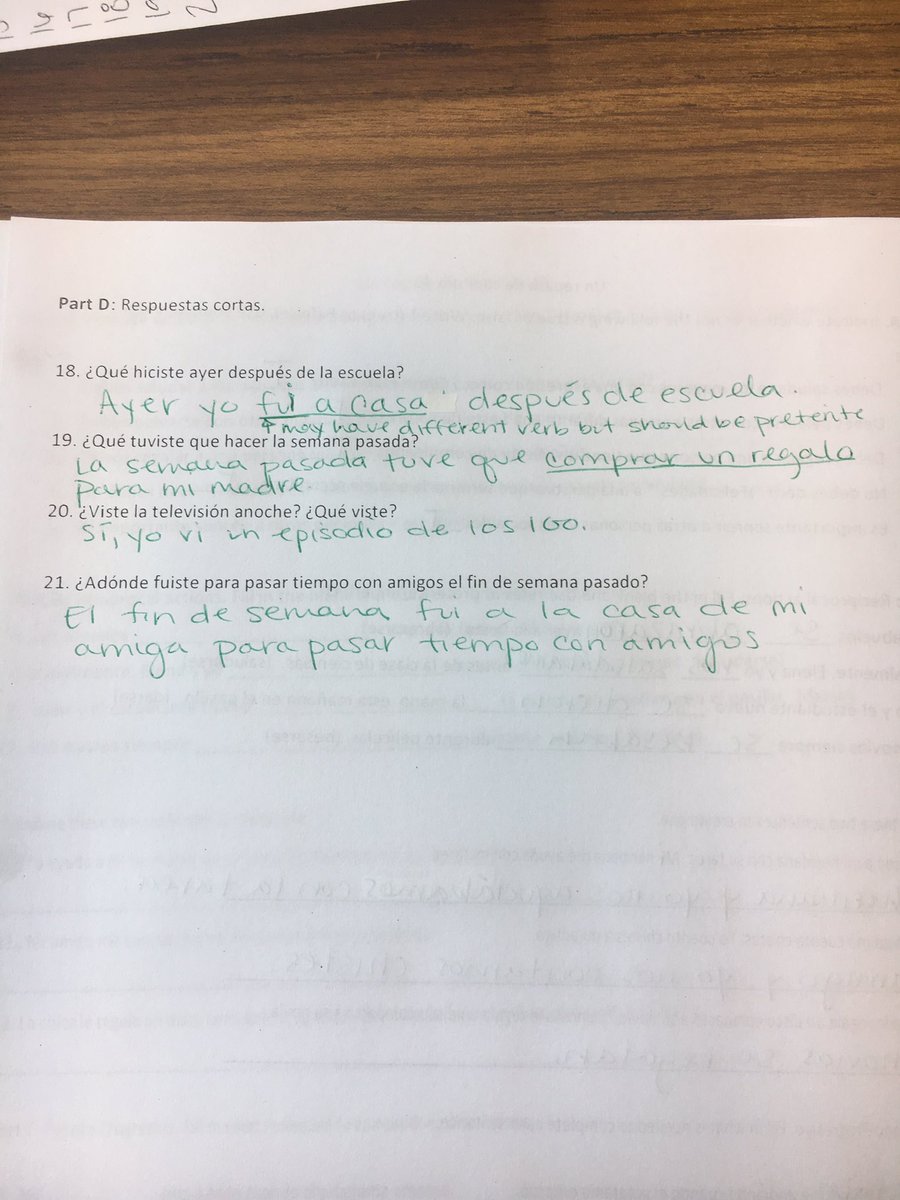 Part D: Respuestas cortas.
18. ¿Qué hiciste ayer después de la escuela?
Ayer yo fui a casa después de escuela.
↑ may have different verb but should be pretente
19. ¿Qué tuviste que hacer la semana pasada?
La semana pasada tuve que comprar un regalo
para mi madre.
20. ¿Viste la televisión anoche? ¿Qué viste?
Sí, yo vi un episodio de los 100.
21. ¿Adónde fuiste para pasar tiempo con amigos el fin de semana pasado?
El fin de semana fui a la casa de mi
amiga para pasar tiempo con amigos